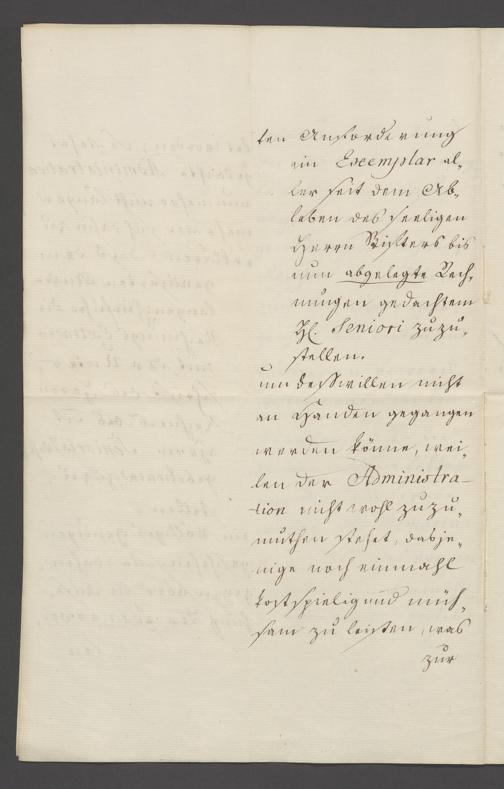 ten Anforderung
ein Exemplar al-
ler seit dem Ab-
leben des seeligen
Herrn Stifters bis
nun abgelegte Rech-
nungen gedachtem
H. Seniori zuzu-
stellen.
um desswillen nicht
an Handen gegangen
werden könne, wei-
len der Administra-
tion nicht wohl zuzu-
muthen stehet, dasje-
nige noch einmahl
kostspielig und müh-
sam zu leisten, was
zur